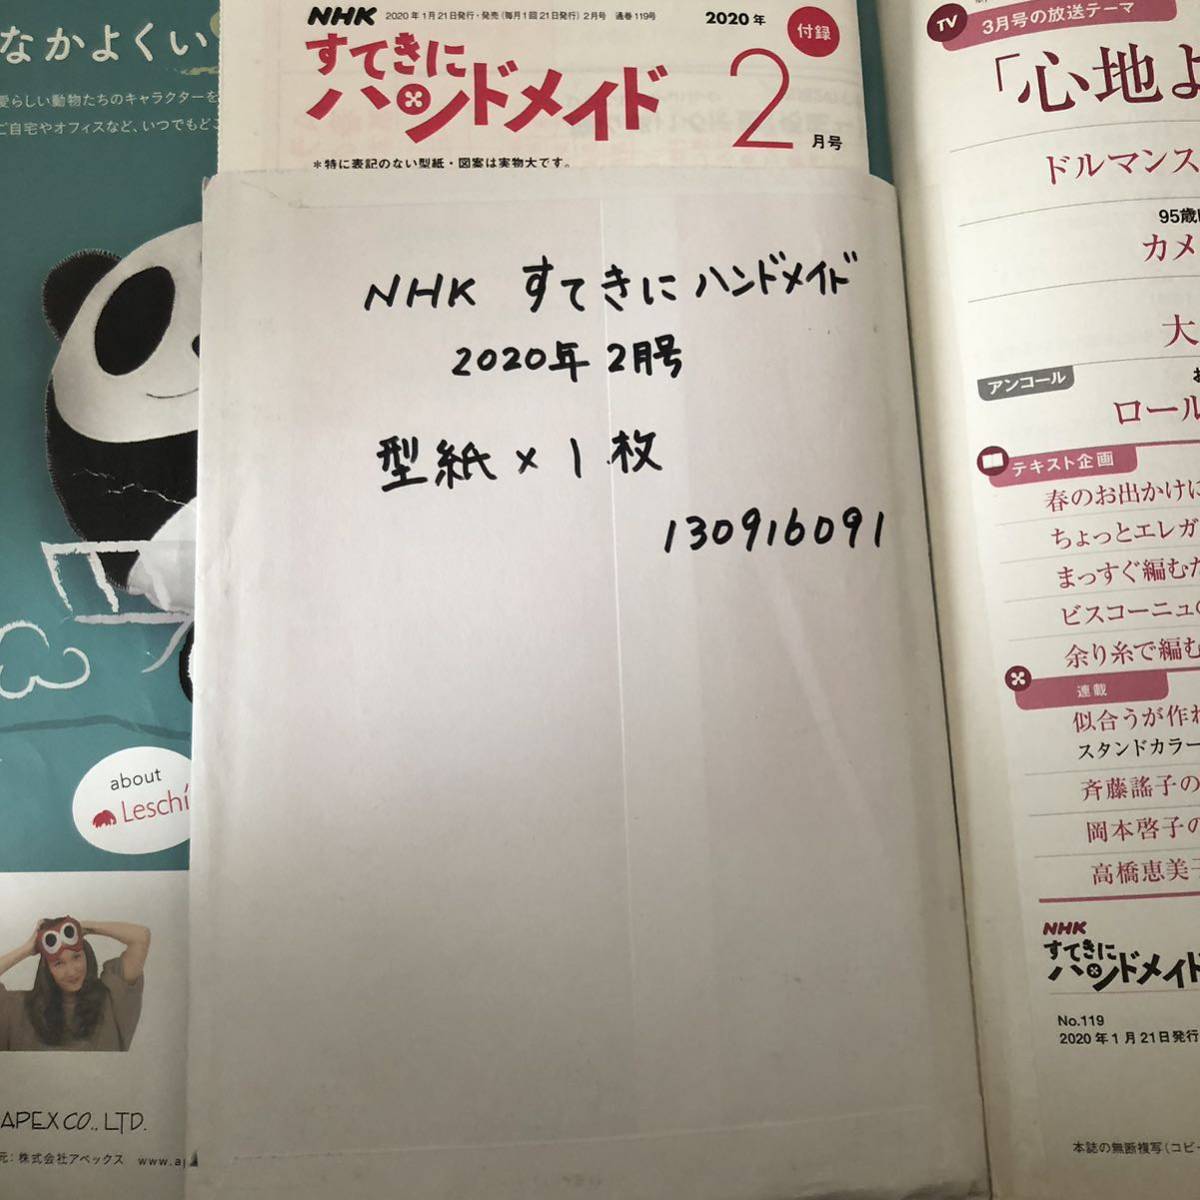 なかよくい
愛らしい動物たちのキャラクターを
ご自宅やオフィスなど、いつでもどこ
about
Leschi
APEX CO., LTD.
元: 株式会社アペックス www.a
NHK 2020年1月21日発行・発売(毎月1回21日発行) 2月号 通巻119号
すてきに
ハンドメイド
2020年
2月号
付録
*特に表記のない型紙・図案は実物大です。
NHK すてきにハンドメイド
2020年 2月号
型紙×1枚
130916091
TV 3月号の放送テーマ
「心地よ
ドルマンス
95歳
カメ
大
アンコール
ロール
テキスト企画
春のお出かけに
ちょっとエレガ
まっすぐ編むた
ビスコーニュの
余り糸で編む
連載
似合うが作れ
スタンドカラー
斉藤謠子の
岡本啓子の
高橋恵美子
NHK
すてきに
ハンドメイド
No.119
2020年1月21日発行
本誌の無断複写(コピー